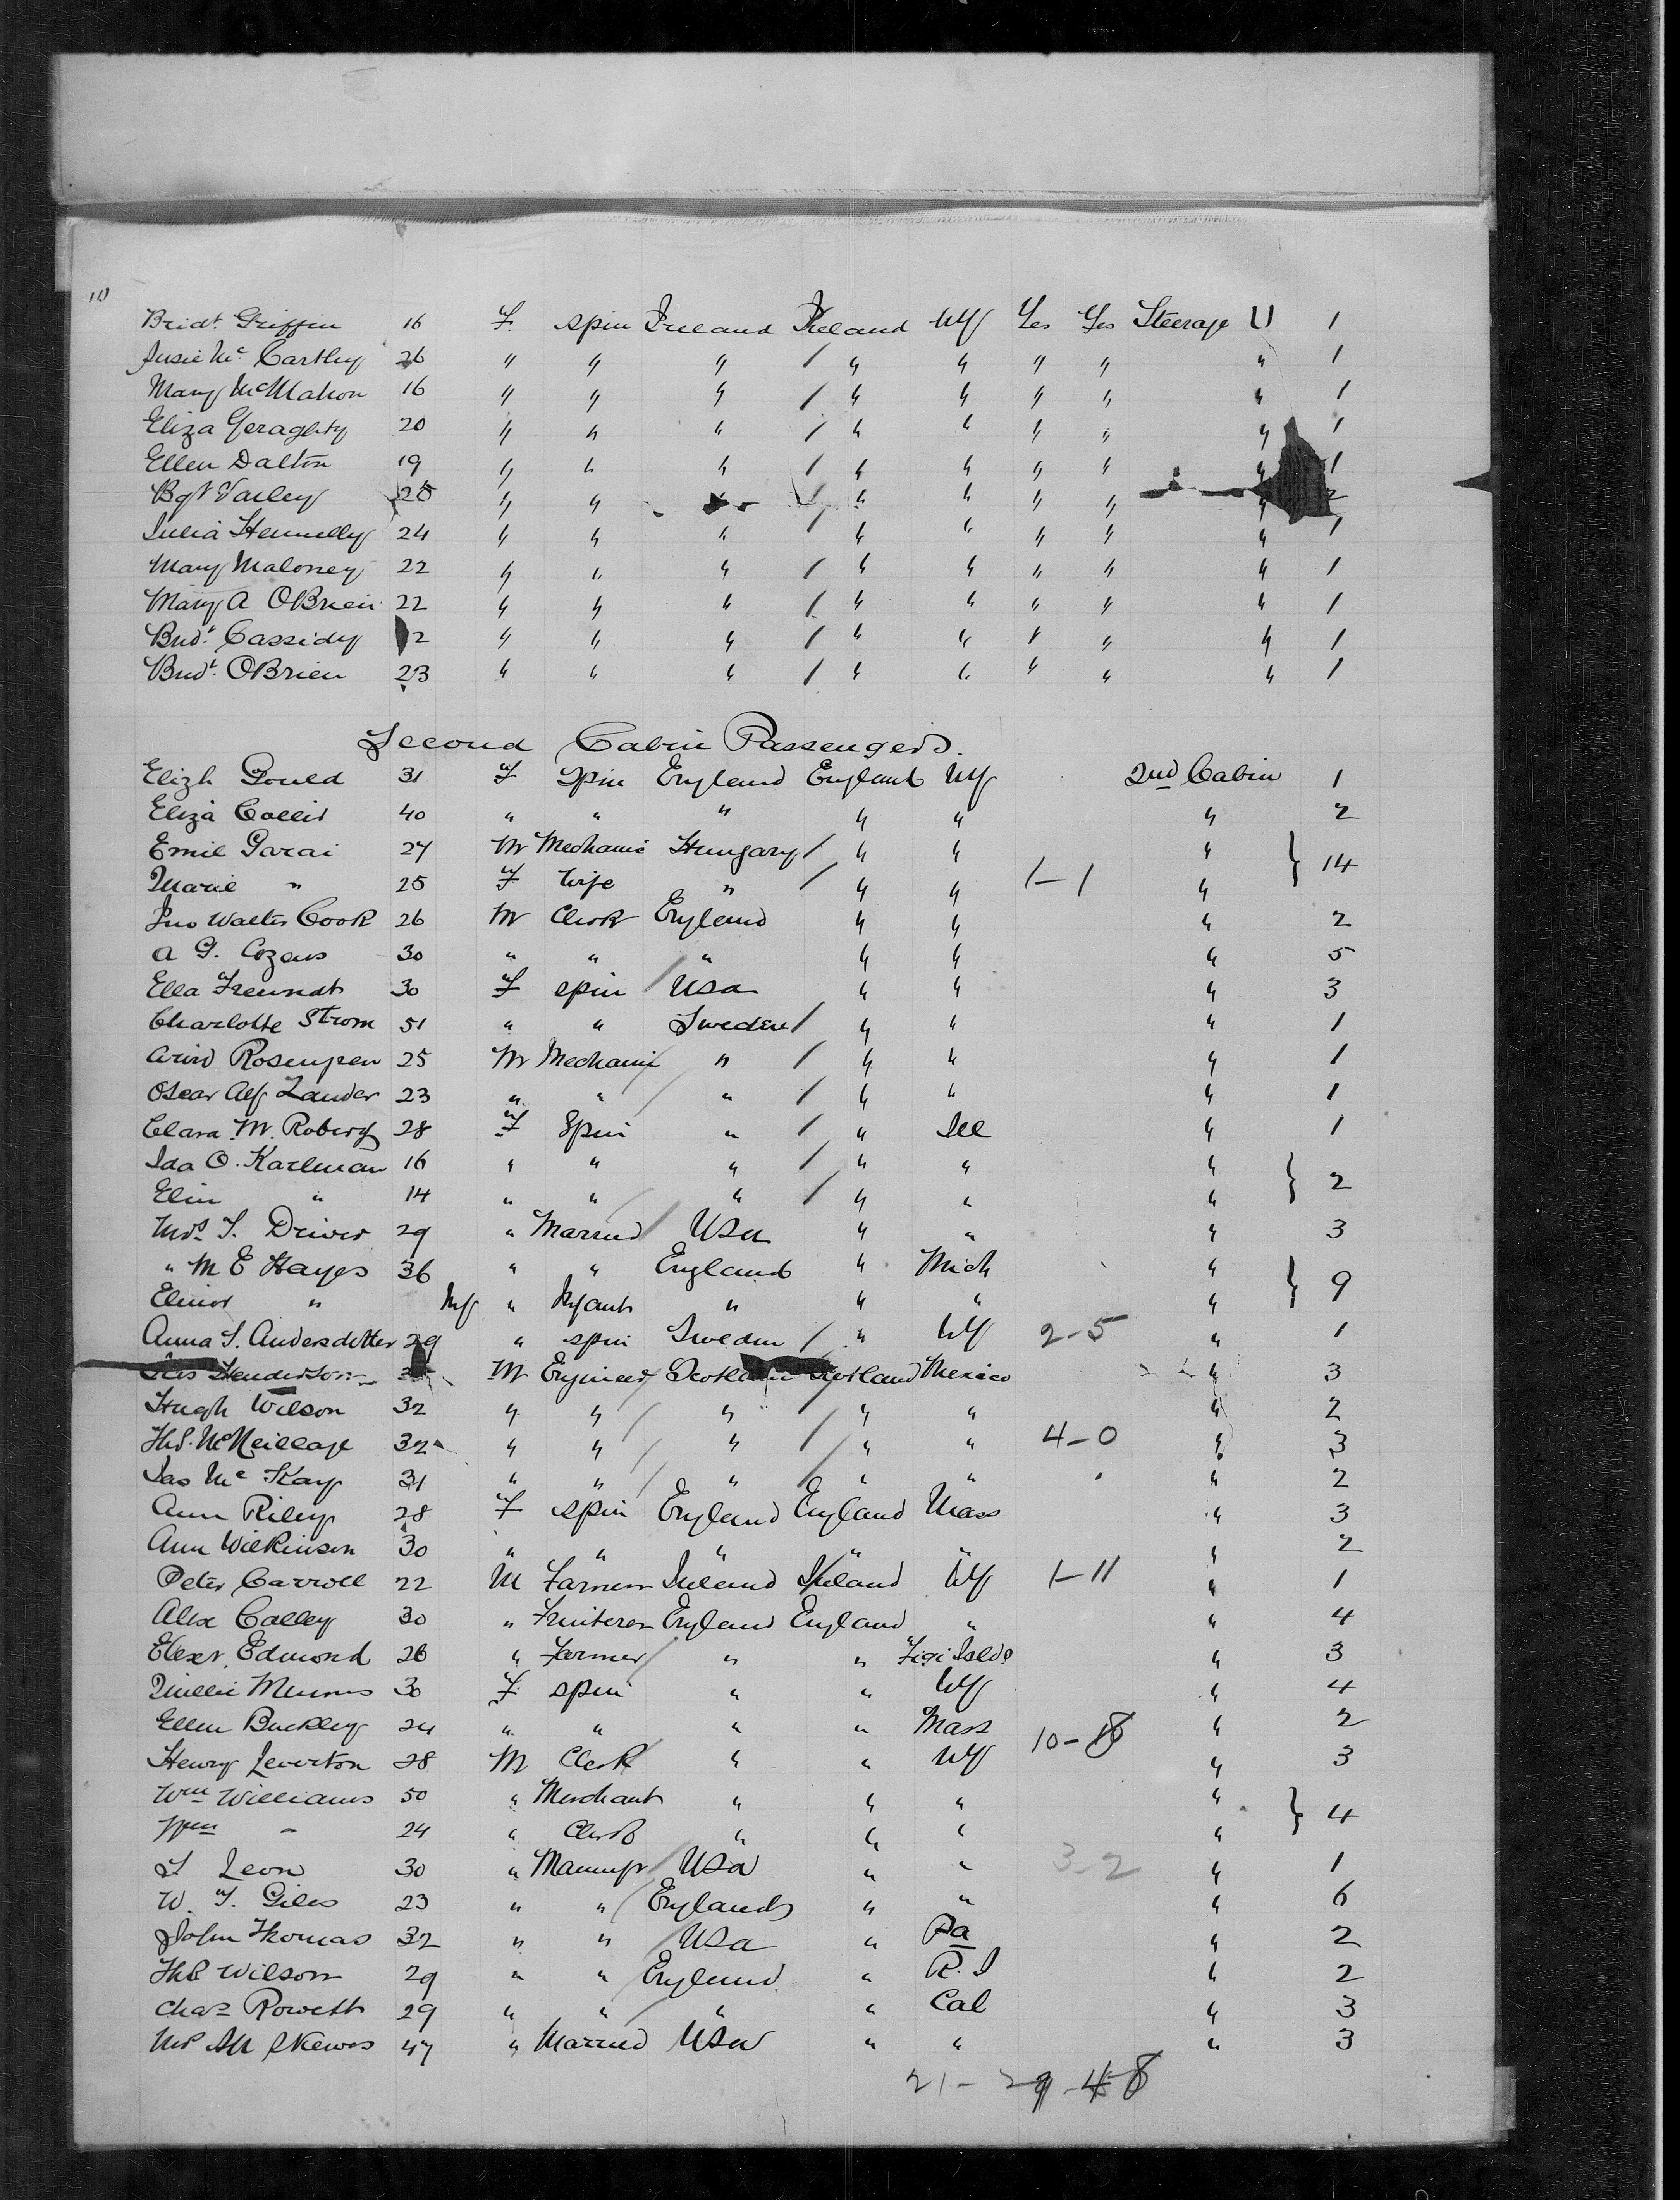 10
Bridt. Griffin 16 F. spin Ireland Ireland NY Yes Yes Steerage U 1
Susie Mc Carthy 26 " " " / " " " " " 1
Mary McMahon 16 " " " / " " " " " 1
Eliza Geraghty 20 " " " / " " " " " 1
Ellen Dalton 19 " " " / " " " " " 1
Bgt Varley " " / " " " " " 2
Julia Hennelly 24 " " " / " " " " " 1
Mary Maloney 22 " " " / " " " " " 1
Mary A OBrien 22 " " " / " " " " " 1
Brdt. Cassidy 2 " " " / " " " " " 1
Brdt. OBrien 23 " " " / " " " " " 1
Second Cabin Passengers.
Elizh Gould 31 F Spin England England NY 2nd Cabin 1
Eliza Collis 40 " " " " " " 2
Emil Garai 27 M Mechanic Hungary / " " " } 14
Marie " 25 F Wife " / " " 1-1 "
Jno Walter Cook 26 M Clerk England " " " 2
A G. Cozens 30 " " " " " " 5
Ella Freundt 30 F spin / USA " " " 3
Charlotte Strom 51 " " Sweden / " " " 1
Arvid Rosengren 25 M Mechanic " / " " " 1
Oscar Alf Lander 23 " " / " / " " " 1
Clara M. Roberg 28 F Spin " / " Ill " 1
Ida O. Karlman 16 " " " / " " " } 2
Elin " 14 " " " / " " "
Mrs. T. Driver 29 " Married / USA " " " 3
" M E Hayes 36 " " England " Mich " } 9
Elinor " Inf " Infant " " " "
Anna S. Andersdotter 29 " spin Sweden / " NY 2-5 " 1
Henderson M Engineer Scotland Scotland Mexico " 3
Hugh Wilson 32 " " / " / " " " 2
Ths. McNeillage 32 " " / " / " " 4-0 " 3
Jas Mc Kay 31 " " / " / " " " 2
Ann Riley 28 F spin England England Mass " 3
Ann Wilkinson 30 " " " " " " 2
Peter Carroll 22 M Farmer Ireland Ireland NY 1-11 " 1
Alex Calley 30 " Fruiterer England England " " 4
Elexr. Edmond 26 " Farmer / " " Figi Islds " 3
Millie 30 F spin " " NY " 4
Ellen Buckley 24 " " " " Mass 10-8 " 2
Henry Leverton 28 M Clerk " " NY " 3
Wm Williams 50 " Merchant " " " " } 4
Wm " 24 " Clerk " " " "
S Leon 30 " Manufr / USA " " 3-2 " 1
W. T. Giles 23 " " / England " " " 6
John Thomas 32 " " / USA " Pa " 2
Ths Wilson 29 " " / England " R.I " 2
Chas Rowett 29 " " / " " Cal " 3
Mrs Skewes 47 " Married USA " " " 3
21-29-48